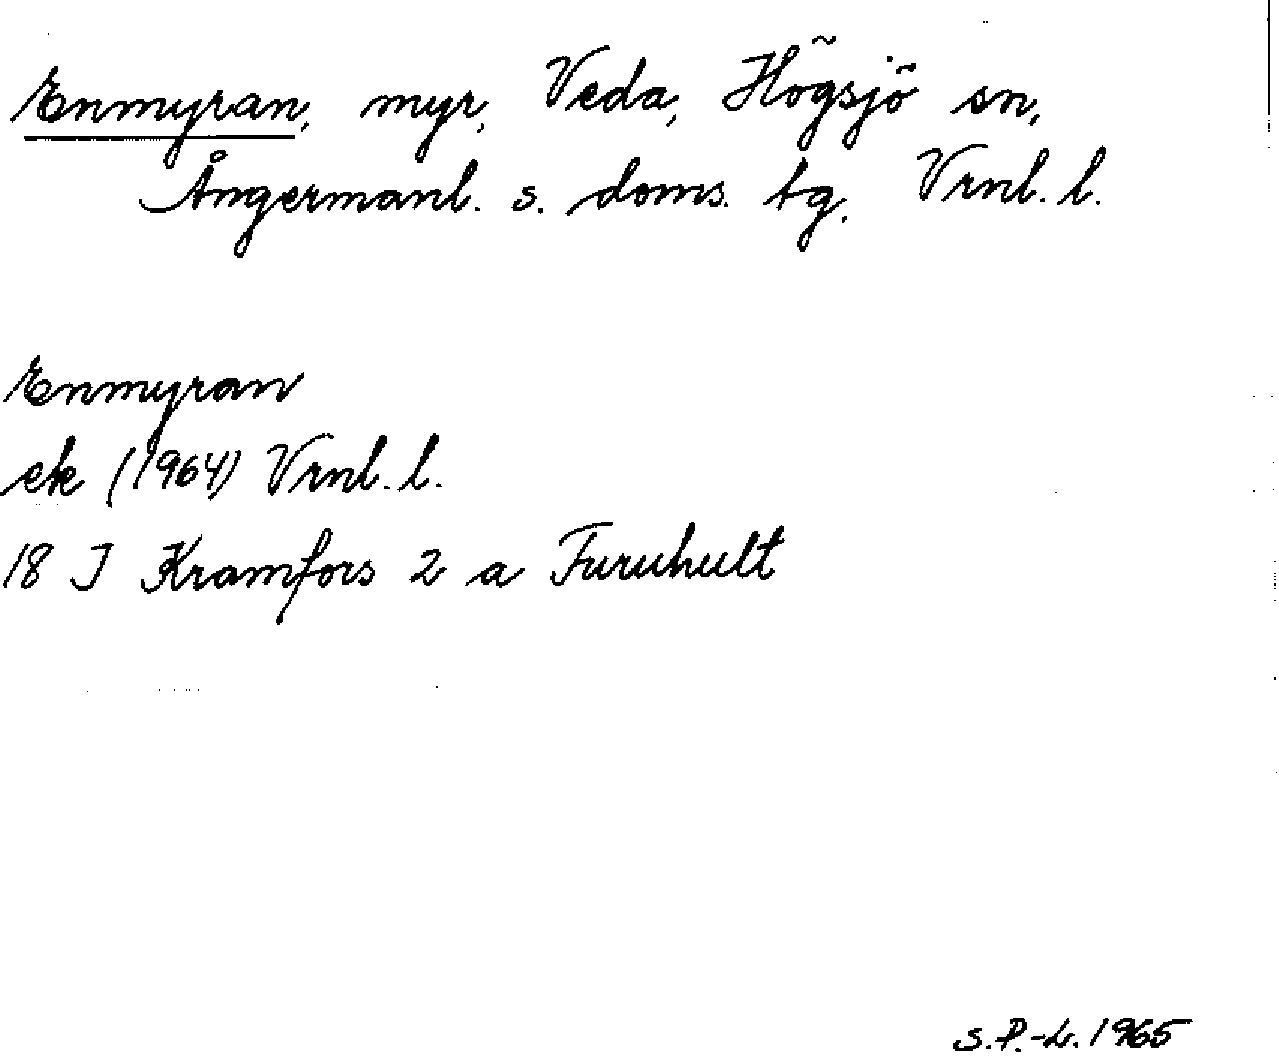 Enmyran, myr, Veda, Högsjö sn,
Ångermanl. s. doms. tg. Vrnl. l.
Enmyran
ek (1964) Vrnl. l.
18 J Kramfors 2 a Furuhult
S.P.-L. 1965